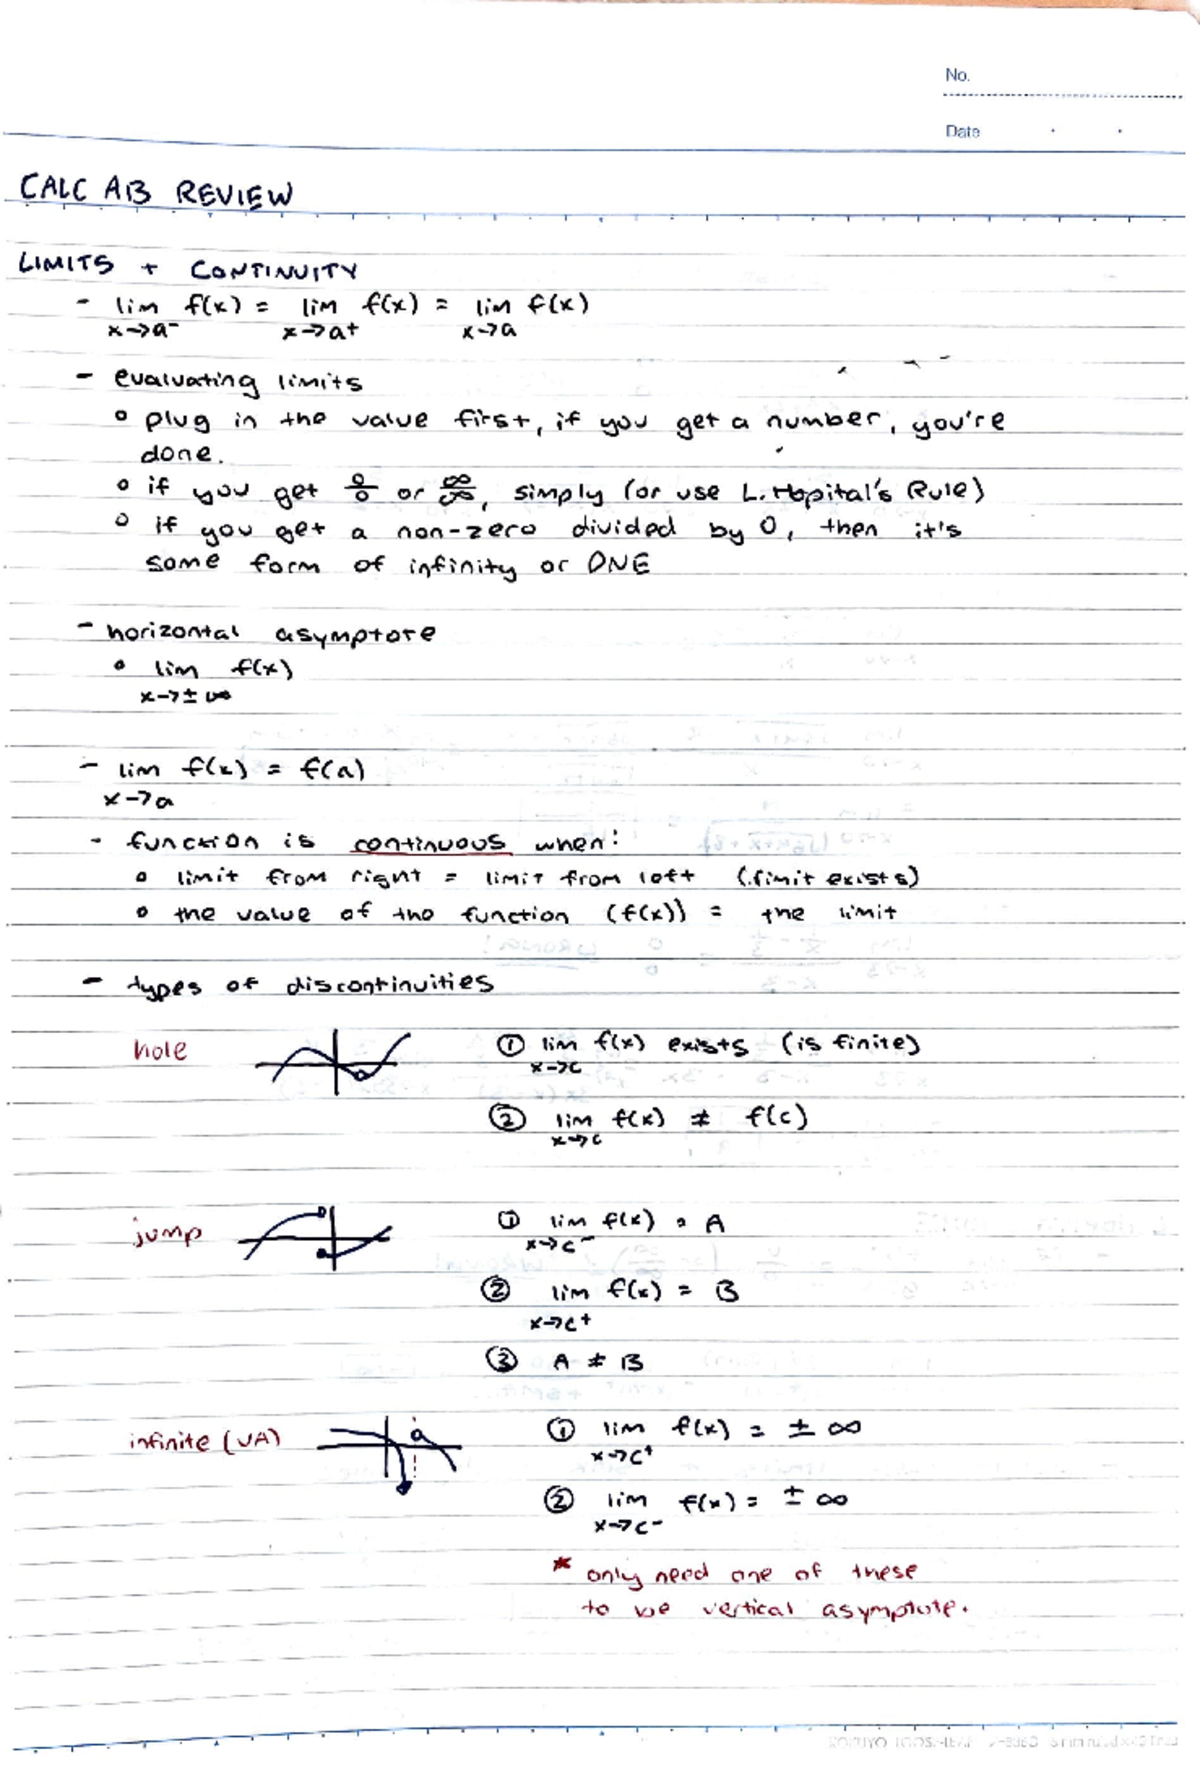 No.
Date
CALC AB REVIEW
LIMITS + CONTINUITY
- lim f(x) = lim f(x) = lim f(x)
x→a⁻ x→a⁺ x→a
- evaluating limits
o plug in the value first, if you get a number, you're
done.
o if you get 0/0 or ∞/∞, simply (or use L.Hopital's Rule)
o if you get a non-zero divided by 0, then it's
some form of infinity or DNE
- horizontal asymptote
o lim f(x)
x→±∞
- lim f(x) = f(a)
x→a
- function is continuous when:
o limit from right = limit from left (limit exists)
o the value of the function (f(x)) = the limit
- types of discontinuities
hole ① lim f(x) exists (is finite)
x→c
② lim f(x) ≠ f(c)
x→c
jump ① lim f(x) = A
x→c⁻
② lim f(x) = B
x→c⁺
③ A ≠ B
infinite (VA) ① lim f(x) = ± ∞
x→c⁺
② lim f(x) = ± ∞
x→c⁻
* only need one of these
to be vertical asymptote.